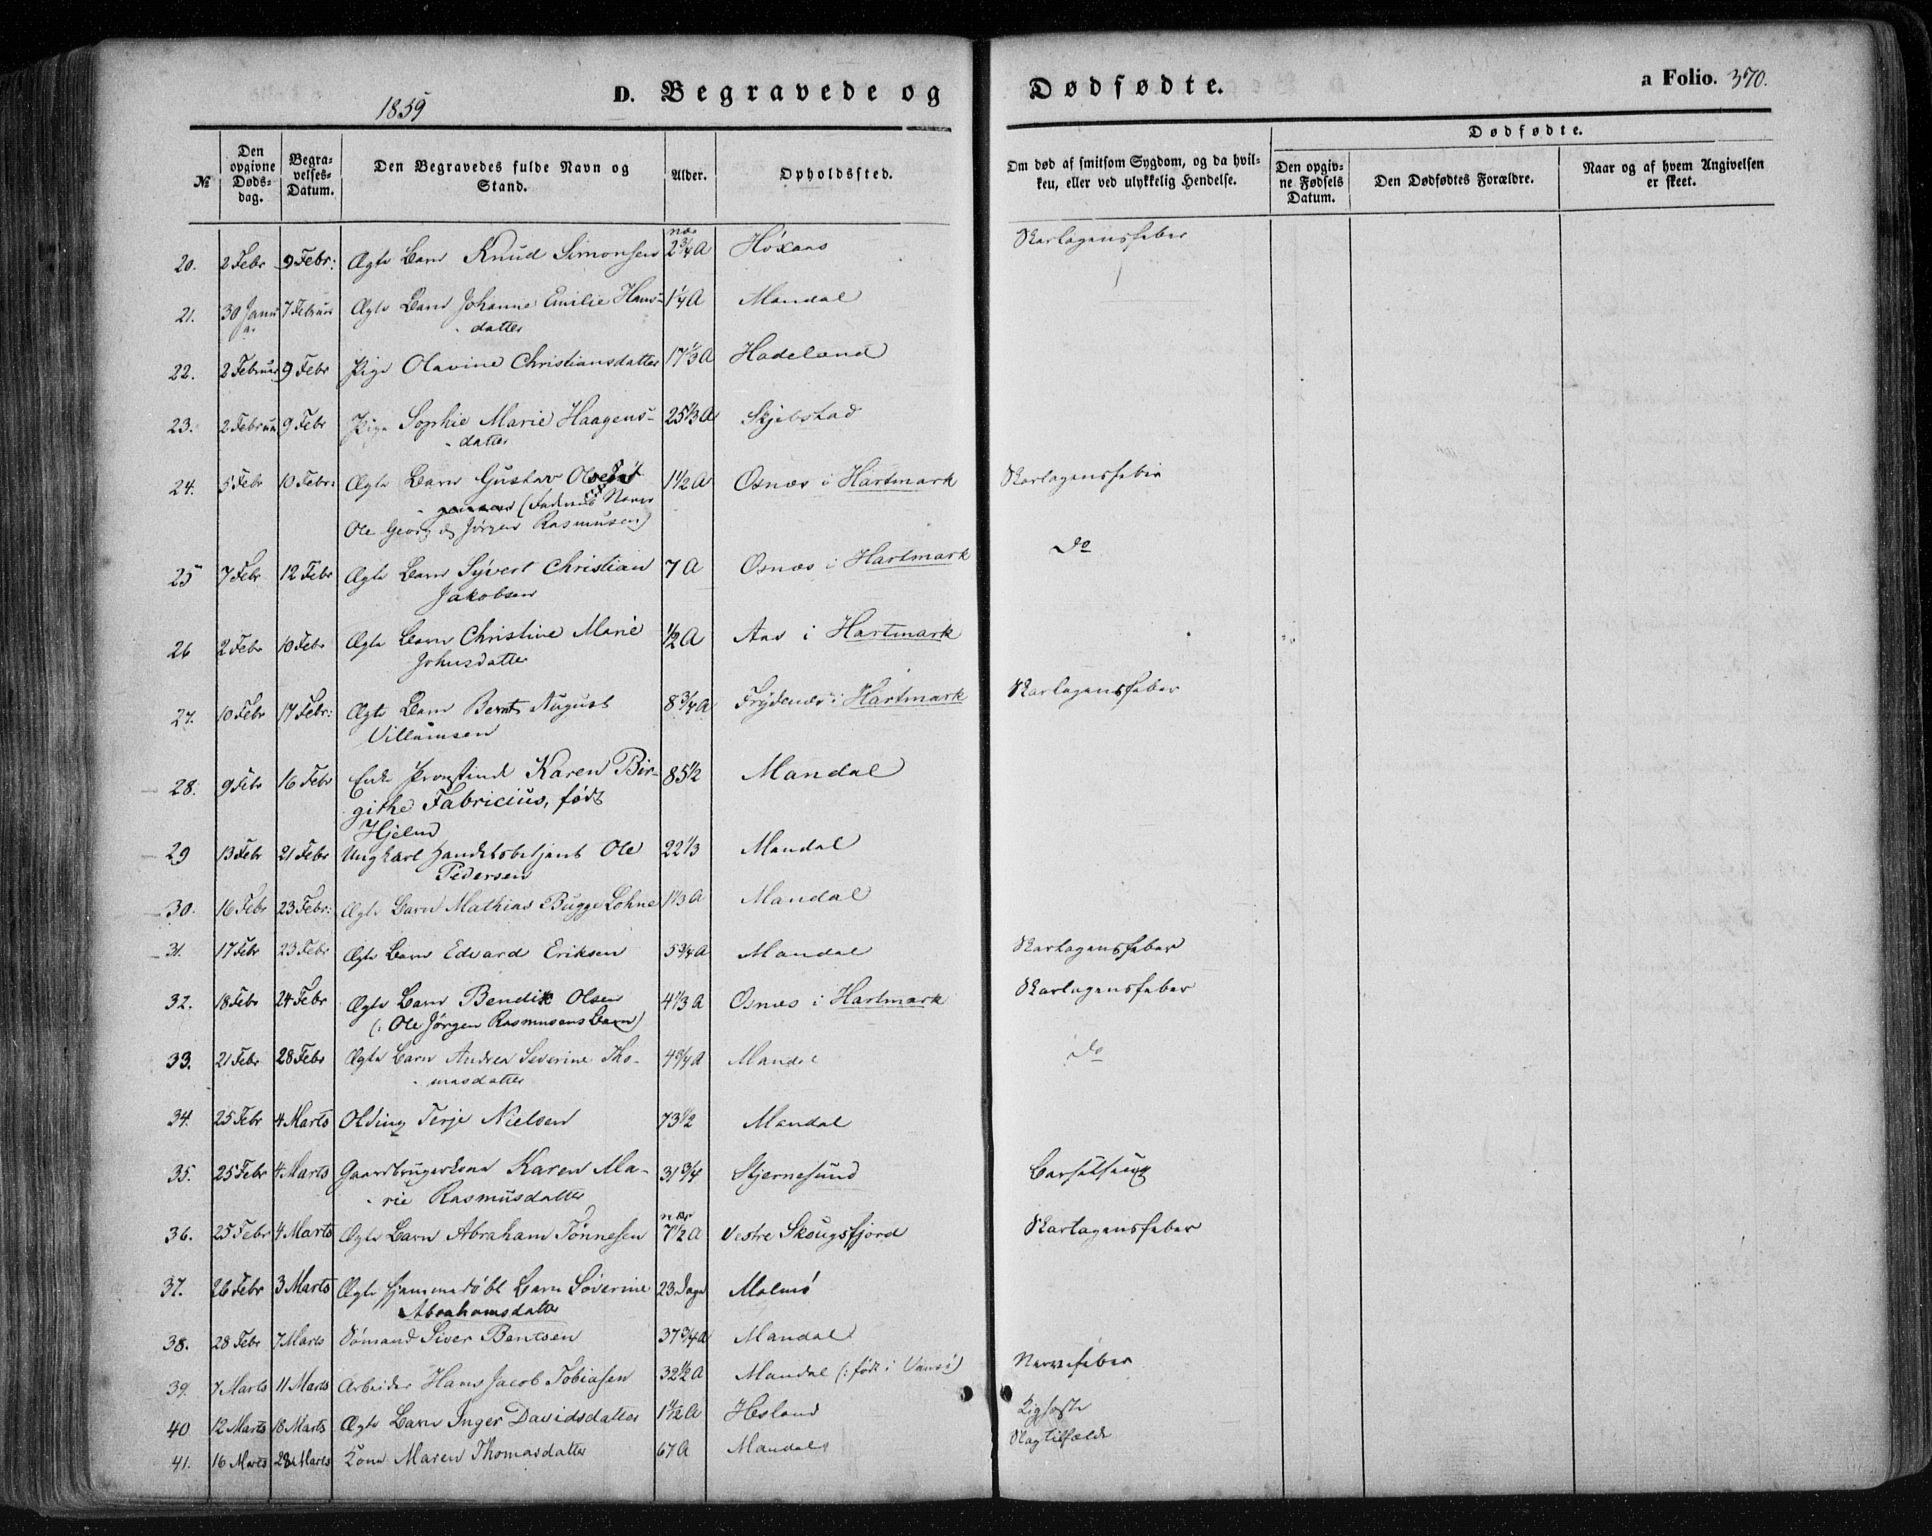 1859
D. Begravede og Dødfødte.
a Folio. 370.
№
Den opgivne Døds-dag.
Begra-velses-Datum.
Den Begravedes fulde Navn og Stand.
Alder.
Opholdssted.
Om død af smitsom Sygdom, og da hvil-ken, eller ved ulykkelig Hendelse.
Dødfødte.
Den opgiv-ne Fødsels Datum.
Den Dødfødtes Forældre.
Naar og af hvem Angivelsen er skeet.
20. 2 Febr 9 Febr: Ægte Barn Knud Simonsen nær 2 3/4 A Høxaas Skarlagensfeber
21. 30 Januar 7 Februar Ægte Barn Johanne Emilie Hans-
datter 1 1/4 A Mandal
22. 2 Februar 9 Febr Pige Olavine Christiansdatter 17 1/3 A Hadeland
23. 2 Februar 9 Febr Pige Sophie Marie Haagens-
datter 25 1/3 A Skjebstad
24. 5 Febr 10 Febr: Ægte Barn Gustav
(Faderens Navn 1 1/2 A Osnæs i Hartmark Skarlagensfeber
Ole Georg Jørgen Rasmusen)
25 7 Febr 12 Febr Ægte Barn Syvert Christian
Jakobsen 7 A Osnæs i Hartmark Do
26 2 Febr 10 Febr Ægte Barn Christine Marie
Johnsdatter 1/2 A Aas i Hartmark
27. 10 Febr 17 Febr: Ægte Barn Bernt August
Villumsen 8 3/4 A Frydenæs i Hartmark Skarlagensfeber
28. 9 Febr 16 Febr Enke Karen Bir-
githe Fabricius, født
Hjelm 85 1/2 Mandal
29 13 Febr 21 Febr Ungkarl Handelsbetjent Ole
Pedersen 22 1/3 Mandal
30. 16 Febr 23 Febr: Ægte Barn Mathias Bugge Lohne 1 1/3 A Mandal
31. 17 Febr 23 Febr Ægte Barn Edvard Eriksen 5 3/4 A Mandal Skarlagensfeber
32. 18 Febr 24 Febr Ægte Barn Bendik Olsen
(: Ole Jörgen Rasmusens Barn) 4 1/3 A Osnæs i Hartmark Skarlagensfeber
33. 21 Febr 28 Febr Ægte Barn Andrea Severine Tho-
masdatter 4 3/4 A Mandal Do
34. 25 Febr 4 Marts Olding Terje Nielsen 73 1/2 Mandal
35. 25 Febr 4 Marts Gaardbrugerkone Karen Ma-
rie Rasmusdatter 31 3/4 Skjernesund Barselseng
36. 25 Febr 4 Marts Ægte Barn Abraham Tønnesen nær 7 1/2 A Vestre Skougsfjord Skarlagensfeber
37. 26 Febr 3 Marts Ægte hjemmedøbt Barn Søverine
Abrahamsdatter 23 Dage Malmø
38. 28 Febr 7 Marts Sømand Siver Bentsen 37 3/4 A Mandal
39. 7 Marts 11 Marts Arbeider Hans Jacob Tobiasen 32 1/2 A Mandal (: født i Vansø) Nervefeber
40 12 Marts 18 Marts Ægte Barn Inger Davidsdatter 1 1/2 A Hesland
41. 16 Marts 28 Marts Kone Maren Thomasdatter 67 A Mandal Slagtilfælde